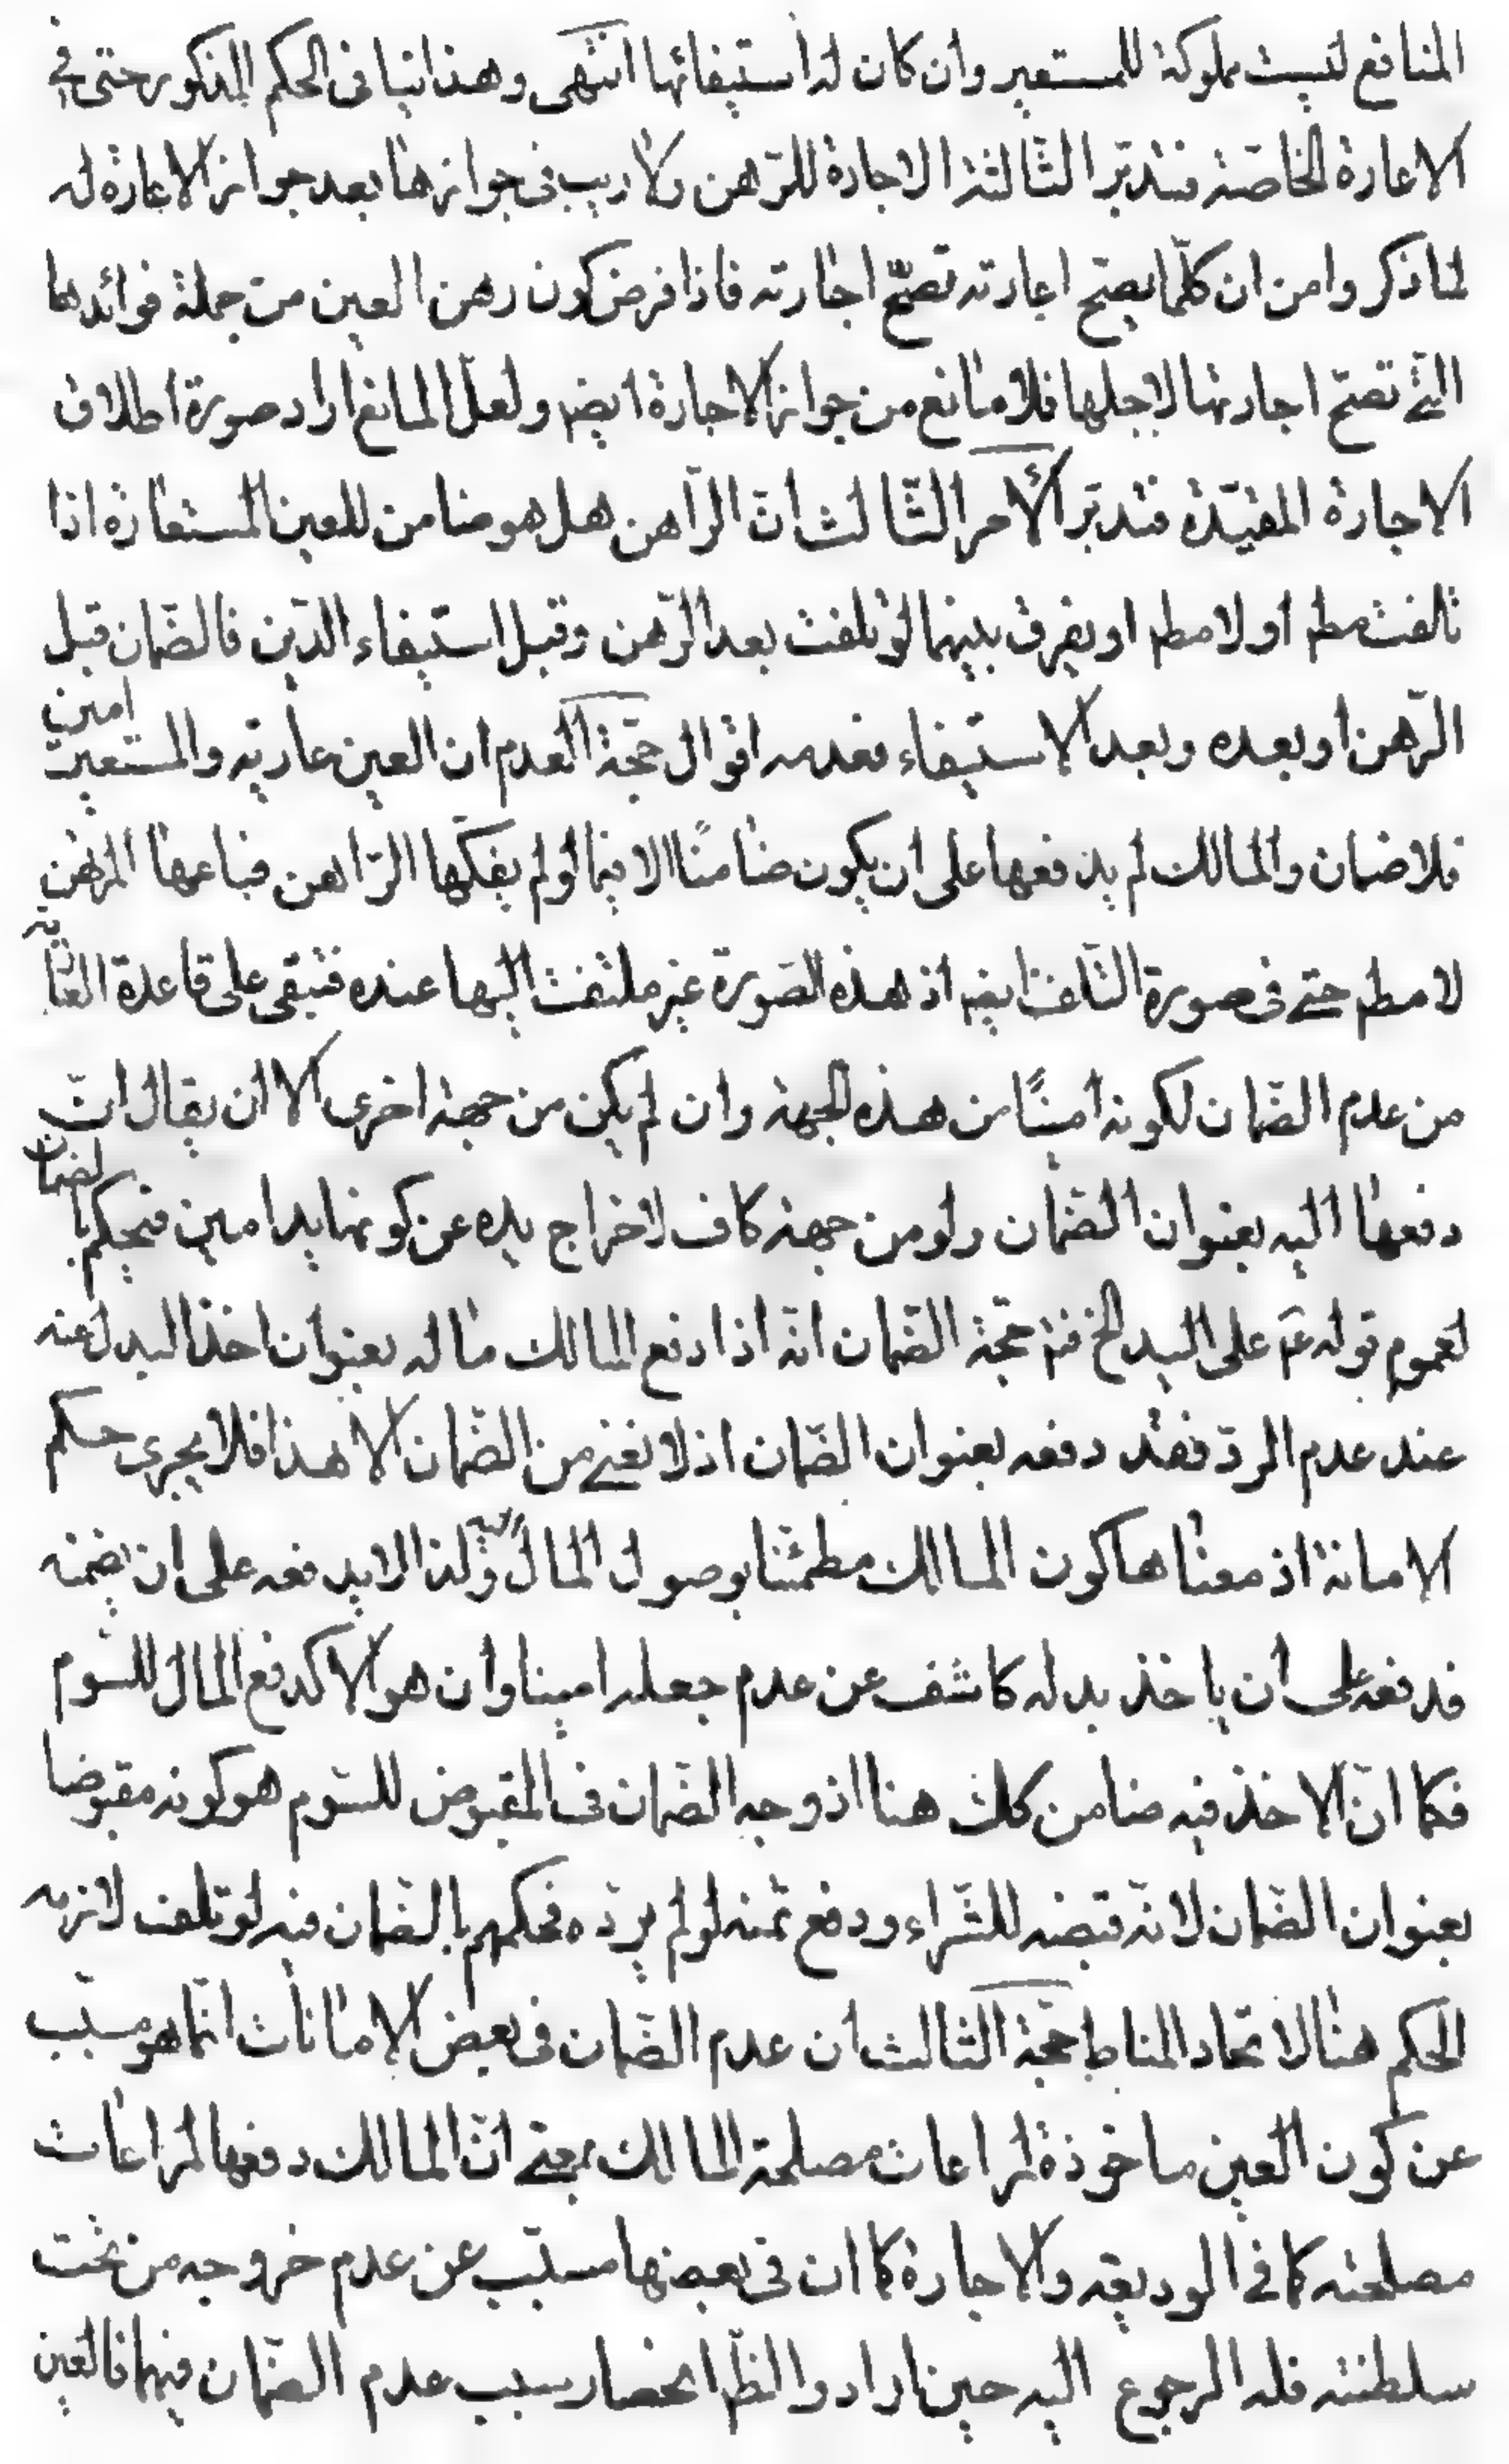 المنافع ليست مملوكة للمستعير وان كان له استيفائها انتهى وهذا ينافى الحكم المذكور حتى فى
الاعارة الخاصّة فتدبّر الثّالثة الاجارة للرّهن ولا ريب فى جوازها بعد جواز الاعارة له
لما ذكروا من ان كلّما يصحّ اعارته تصحّ اجارته فاذا فرض كون رهن العين من جملة فوائدها
الّتى تصحّ اجارتها لاجلها فلا مانع من جواز الاجارة ايضا ولعلّ المانع اراد صورة اطلاق
الاجارة المقيّدة فتدبّر الأمر الثّالث انّ الرّاهن هل هو ضامن للعين المستعارة اذا
تلفت مطلقا او لا مطلقا او يفرق بينهما لو تلفت بعد الرّهن وقبل استيفاء الدّين فالضّمان قبل
الرّهن او بعده وبعد الاستيفاء فعدمه اقوال حجّة العدم ان العين عارية والمستعير امين
فلا ضمان والمالك لم يدفعها على ان يكون ضامنًا الا فيما لو لم يفكّها الرّاهن فباعها المرتهن
لا مطلقا حتى فى صورة التّلف ايضا اذ هذه الصّورة غير ملتفت اليها عنده فتبقى على قاعدة العارية
من عدم الضّمان لكونه امينًا من هذه الجهة وان لم يكن من جهة اخرى الا ان يقال انّ
دفعها اليه بعنوان الضّمان ولو من جهة كاف لاخراج يده عن كونها يد امين فيحكم بالضمان
لعموم قوله عم على اليد الخ فتم حجّة الضّمان انّه اذا دفع المالك ماله بعنوان اخذ البدل عنه
عند عدم الردّ فقد دفعه بعنوان الضّمان اذ لا نعنى من الضّمان الا هذا فلا يجرى حكم
الامانة اذ معناها كون المالك مطمئنا بوصول المال اليه ولذا لا يدفعه على ان يضمنه
فدفعه على ان ياخذ بدله كاشف عن عدم جعله امينا وان هو الا كدفع المال للسّوم
فكما انّ الاخذ فيه ضامن كك هنا اذ وجه الضّمان فى المقبوض للسّوم هو كونه مقبوضا
بعنوان الضّمان لانّه قبضه للشّراء ودفع ثمنه لو لم يردّه فحكمهم بالضّمان فيه لو تلف لازمه
الحكم هنا لاتحاد المناط حجّة الثالث ان عدم الضّمان فى بعض الامانات انّما هو مسبّب
عن كون العين ماخوذة لمراعات مصلحة المالك بمعنى انّ المالك دفعها لمراعات
مصلحته كما فى الوديعة والاجارة كما ان فى بعضها مسبّب عن عدم خروجه من تحت
سلطنته فله الرجوع اليه حين اراد والظّ انحصار سبب عدم الضّمان فيهما فالعين